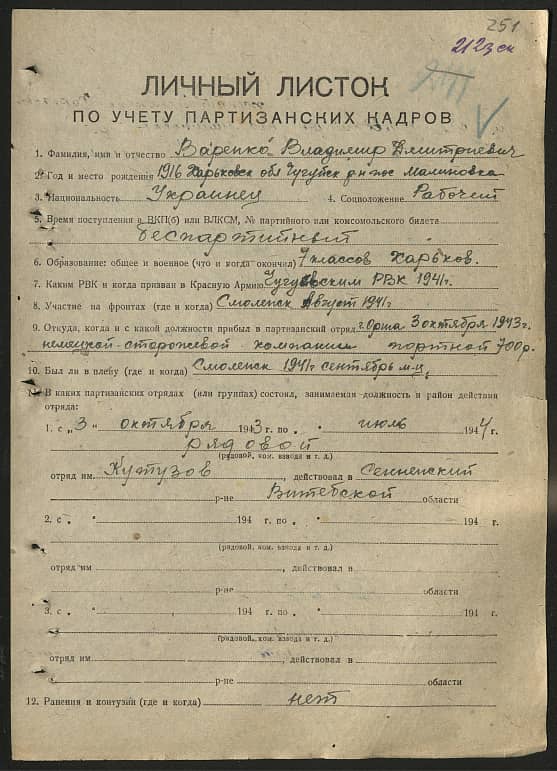 251
2123 ск
ЛИЧНЫЙ ЛИСТОК
ПО УЧЕТУ ПАРТИЗАНСКИХ КАДРОВ
1. Фамилия, имя и отчество Варенко Владимир Дмитриевич
2. Год и место рождения 1916 Харьковск обл Чугуевск р-н пос Малиновка
3. Национальность Украинец 4. Соцположение Рабочий
5. Время поступления в ВКП(б) или ВЛКСМ, № партийного или комсомольского билета
беспартийный
6. Образование: общее и военное (что и когда окончил) 7 классов Харьков.
7. Каким РВК и когда призван в Красную Армию Чугуевским РВК 1941г.
8. Участие на фронтах (где и когда) Смоленск Август 1941г
9. Откуда, когда и с какой должности прибыл в партизанский отряд г Орша 3 октября 1943г.
немецкой-сторожевой компании портной 700р.
10. Был ли в плену (где и когда) Смоленск 1941г сентябрь м-ц
11. В каких партизанских отрядах (или группах) состоял, занимаемая должность и район действия
отряда:
1. с „ 3 " октября 1943 г. по " июль 1944 г.
рядовой
(рядовой, ком. взвода и т. д.)
отряд им. Кутузов, действовал в Сенненский
р-не Витебской области
2. с " 194 г. по " 194 г.
(рядовой, ком. взвода и т. д.)
отряд им , действовал в
р-не области
3. с " 194 г. по " 194 г.
(рядовой, ком. взвода и т. д.)
отряд им , действовал в
р-не области
12. Ранения и контузии (где и когда) нет